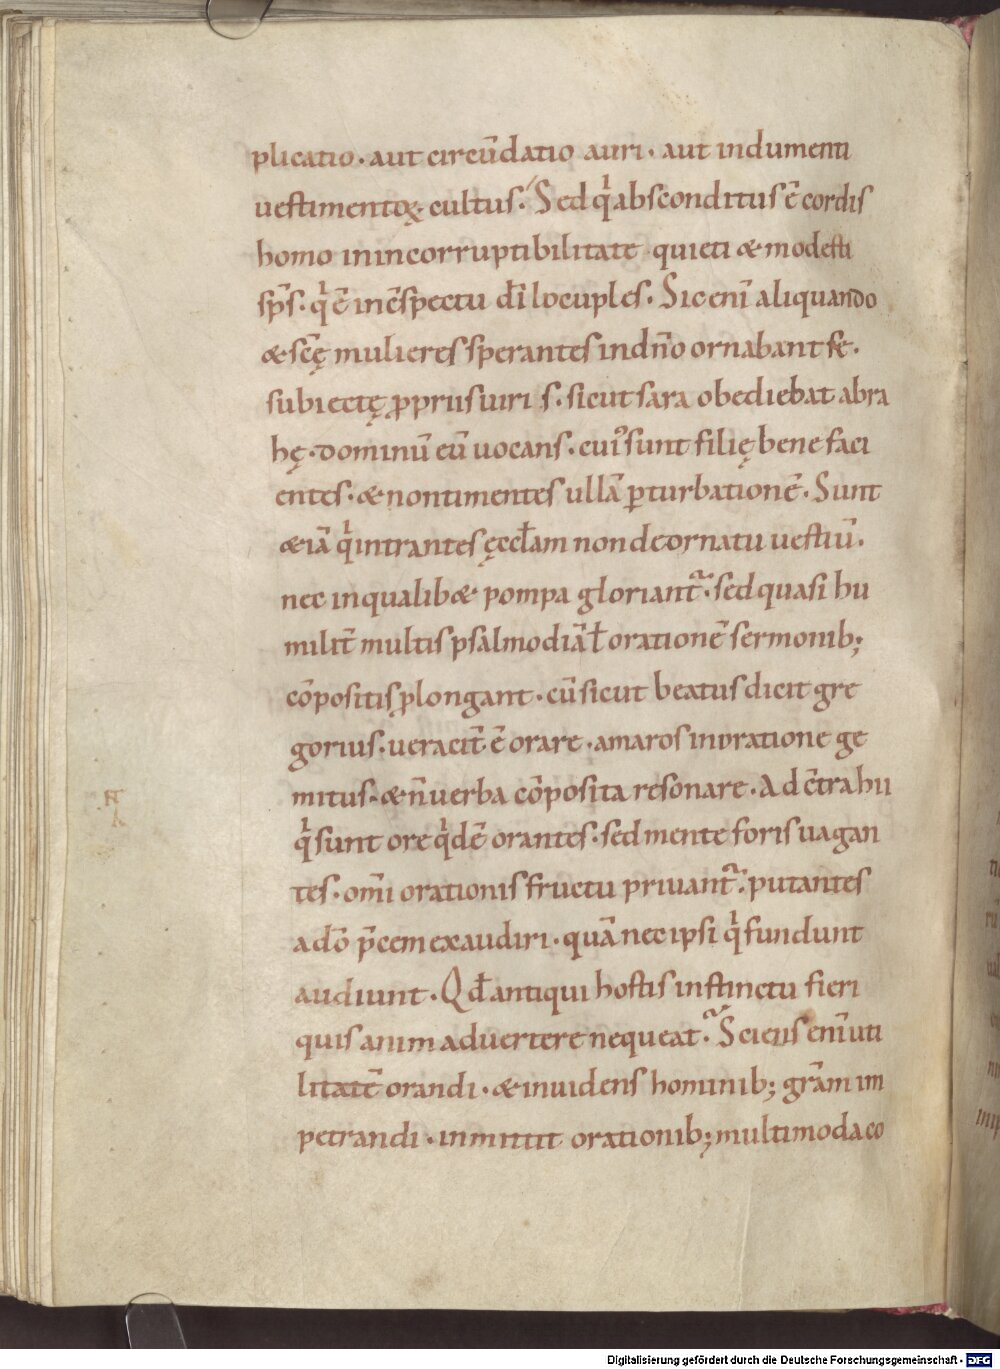 plicatio · aut circū̄datio auri · aut indumenti
uestimentoꝝ cultus · Sed qͥ absconditus ē cordis
homo inincorruptibilitate quieti & modesti
sp̄s · qͥ ē incspectu dī locuples · Sic eni̅ aliquando
& scę mulieres sperantes indn̄o ornabant se ·
subiectę ꝓpriis uiris · sicut sara obediebat abra
hę · dominū eū uocans · cuiꝰ sunt filię bene faci
entes · & non timentes ullā ꝑturbationē · Sunt
& iā qͥ intrantes ęccƚam non de ornatu uestiū ·
nec in qualib& pompa gloriant᷑ · sed quasi hu
milit̄ multis psalmodiā ƚ orationē sermonib;
cōpositis ꝓlongant · cū sicut beatus dicit gre
gorius · ueracit̄ ē orare · amaros in oratione ge
mitus · & n̄ uerba cōposita resonare · Ad c̄tra hii
qͥ sunt ore qͥdē orantes · sed mente foris uagan
tes · om̄i orationis fructu priuant᷑ · putantes
a dō p̄cem exaudiri · quā nec ipsi qͥ fundunt
audiunt · Qđ antiqui hostis instinctu fieri
quis animaduertere nequeat · Sciens eni̅ uti
litatē orandi · & inuidens hominib; gr̄am im
petrandi · inmittit orationib; multimoda co
Digitalisierung gefördert durch die Deutsche Forschungsgemeinschaft - DFG